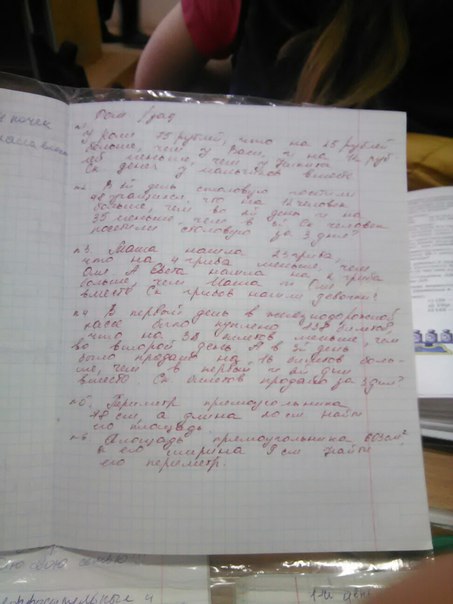 почек
Дом /зад
У Коли 75 рублей, что на 15 рублей
больше, чем у Вани, и на 12 руб
лей меньше, чем у Никиты
Ск денег у мальчиков вместе
В 1й день столовую посетили
48 учащихся, что на 12 человек
больше, чем во 2й день и на
35 меньше, чем в 3й Ск человек
посетили столовую за 3 дня?
№3. Маша нашла 23 гриба,
что на 4 гриба меньше, чем
Оля. А Света нашла на 2 гриба
больше, чем Маша и Оля
вместе Ск грибов нашли девочки?
№4 В первый день в железнодорожной
кассе было куплено билетов,
что на 38 билетов меньше, чем
во второй день, а в 3й день
было продано на 16 билетов боль-
ше, чем в первый и 2й дни
вместе Ск билетов продали за 3 дня?
№5. Периметр прямоугольника
48 см, а длина 10 см найти
его площадь
Площадь прямоугольника 603 см²
а его ширина 9 см найти
его периметр.